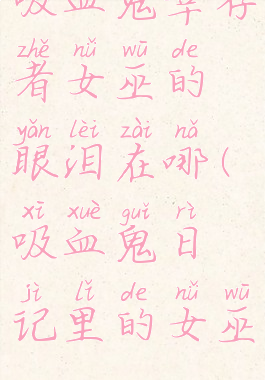 吸血鬼幸存
zhě nǚ wū de
者女巫的
yǎn lèi zài nǎ
眼泪在哪(
xī xuè guǐ rì
吸血鬼日
jì lǐ de nǚ wū
记里的女巫